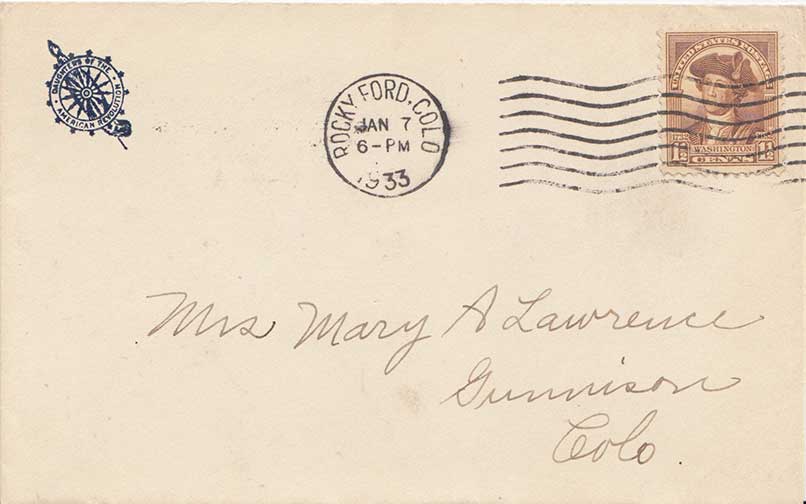 DAUGHTERS OF THE
AMERICAN REVOLUTION
ROCKY FORD, COLO
JAN 7
6-PM
1933
UNITED STATES POSTAGE
1732 1932
WASHINGTON
1½ CENTS 1½
Mrs Mary A Lawrence
Gunnison
Colo.